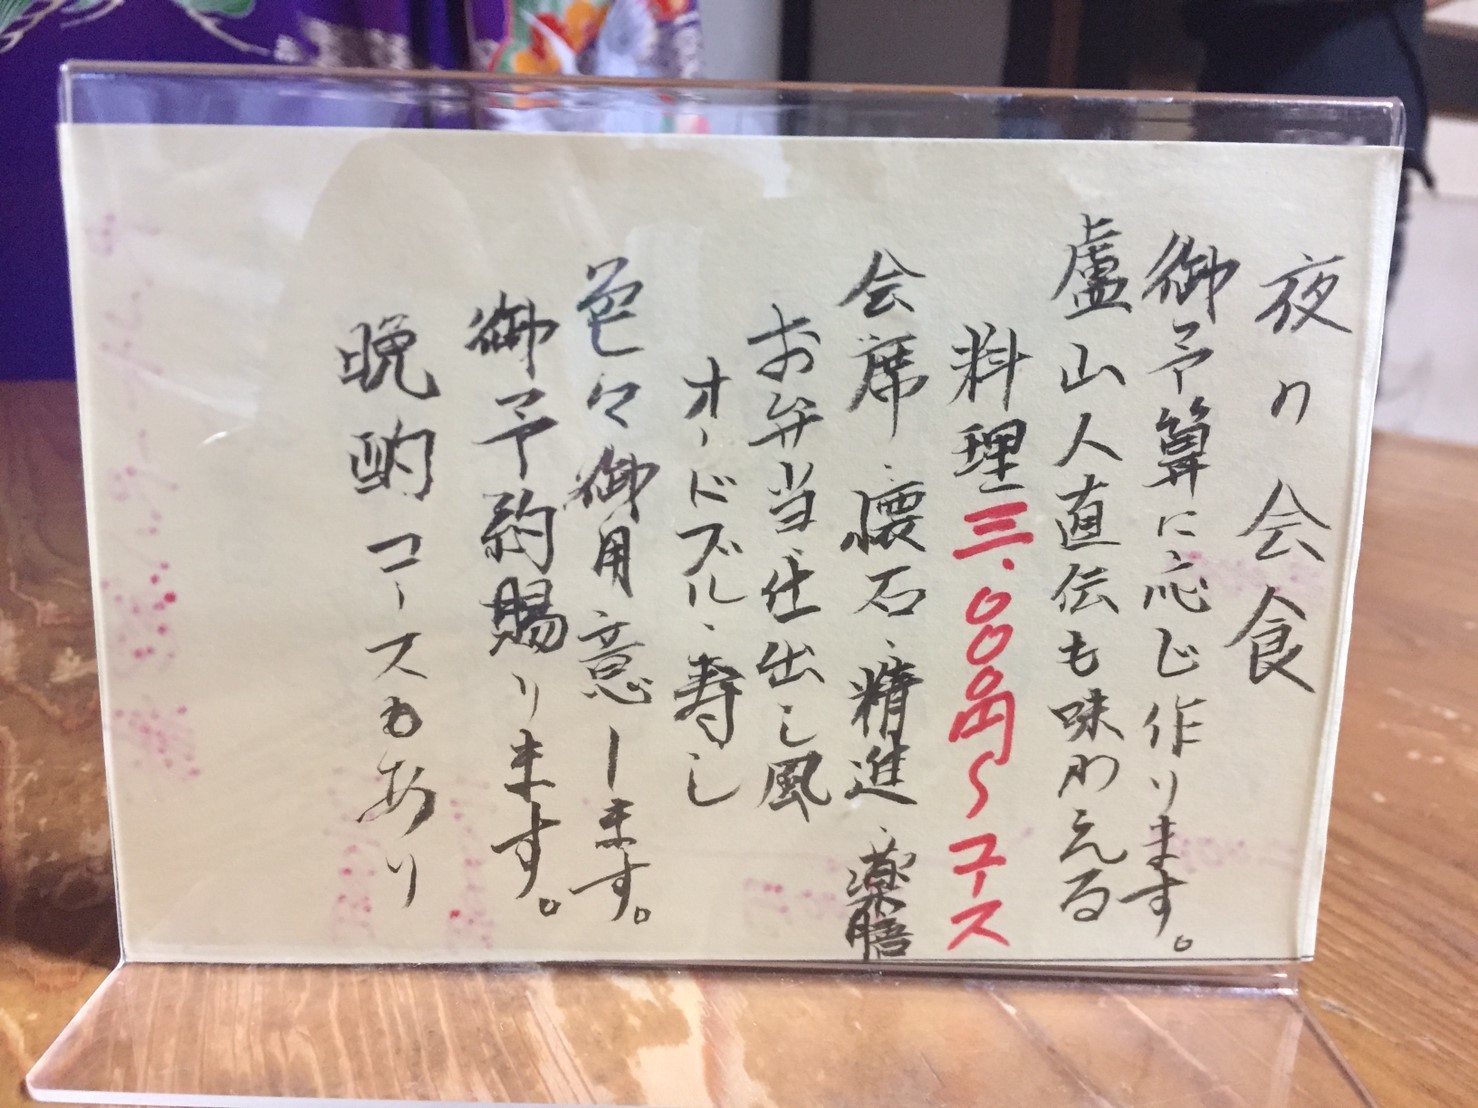 夜の会食
御予算に応じ作ります。
盧山人直伝も味わえる
料理三.000円〜コース
会席、懐石、精進、薬膳
お弁当仕出し風
オードブル、寿し
色々御用意します。
御予約賜ります。
晩酌コースもあり